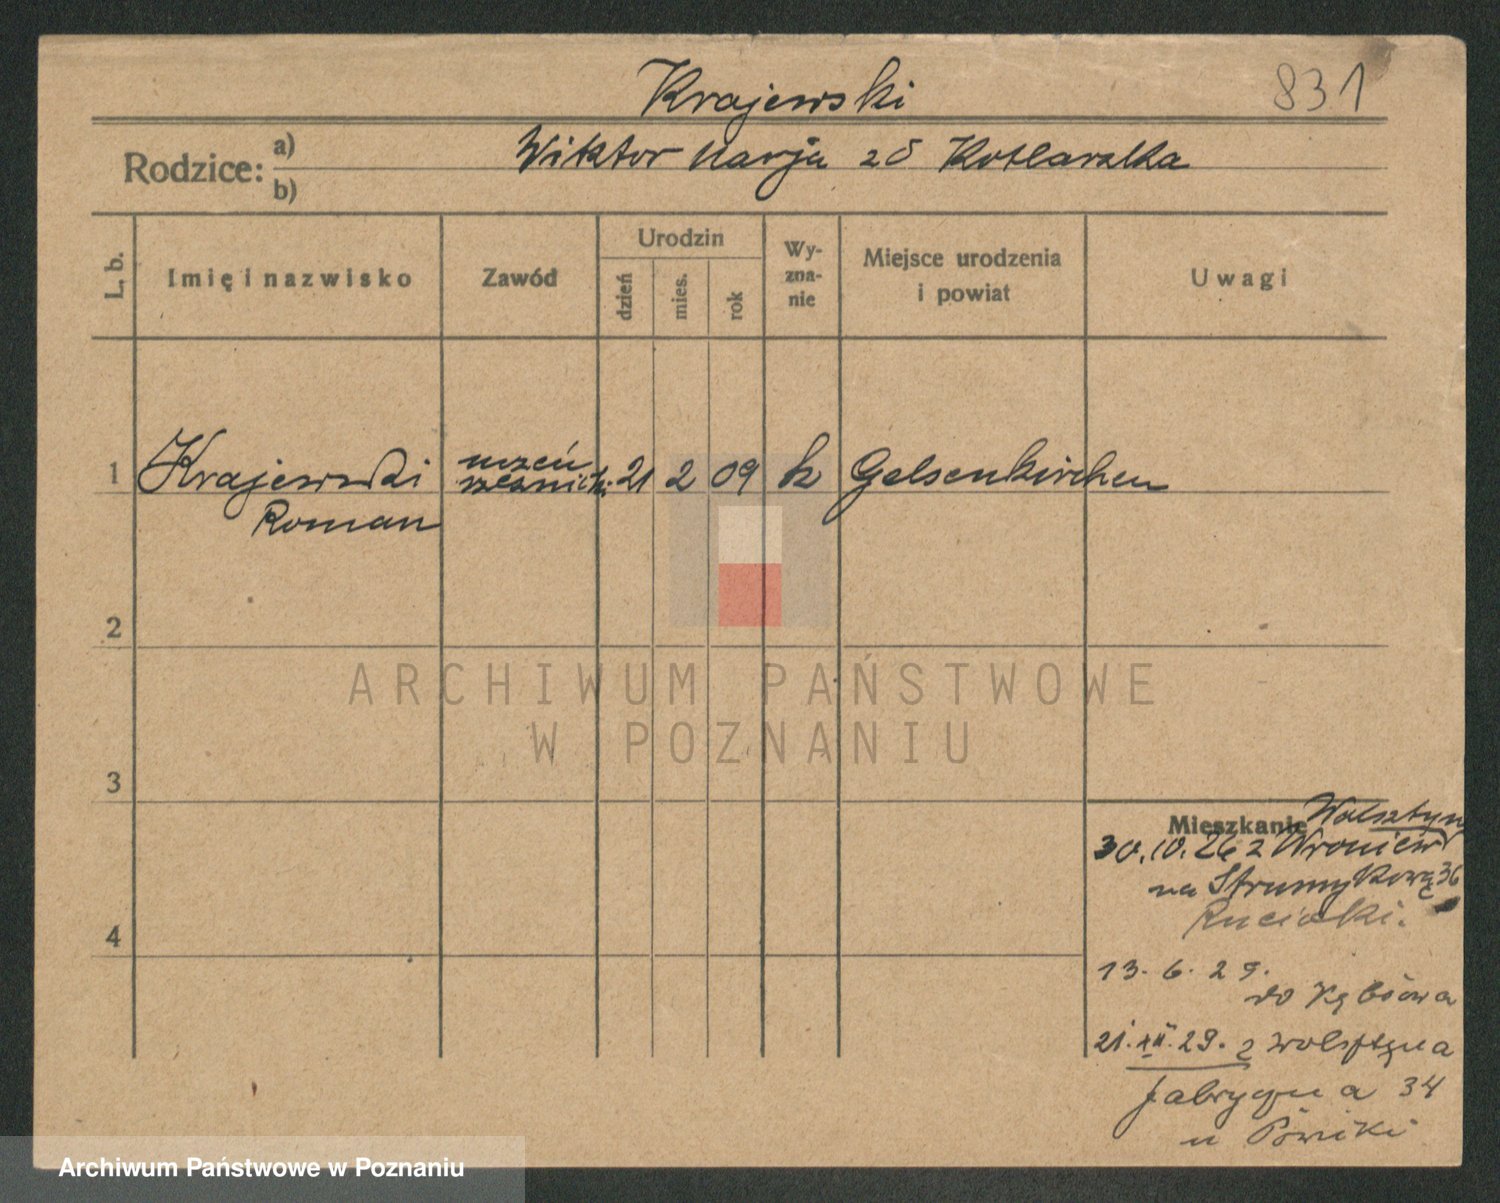 Krajewski
831
Rodzice: a)
b)
Wiktor Marja zd Kotlarzka
L. b.
Imię i nazwisko
Zawód
Urodzin
dzień
mies.
rok
Wy-
zna-
nie
Miejsce urodzenia
i powiat
Uwagi
1
Krajewski
Roman
uczeń
21
2
09
k
Gelsenkirchen
2
ARCHIWUM PAŃSTWOWE
W POZNANIU
3
Mieszkanie
Wolsztyn
30.10.26 z Wroniaw
na Strumykową 36
13. 6. 29.
do
21.XII.29. z Wolsztyna
Fabryczna 34
u
4
Archiwum Państwowe w Poznaniu